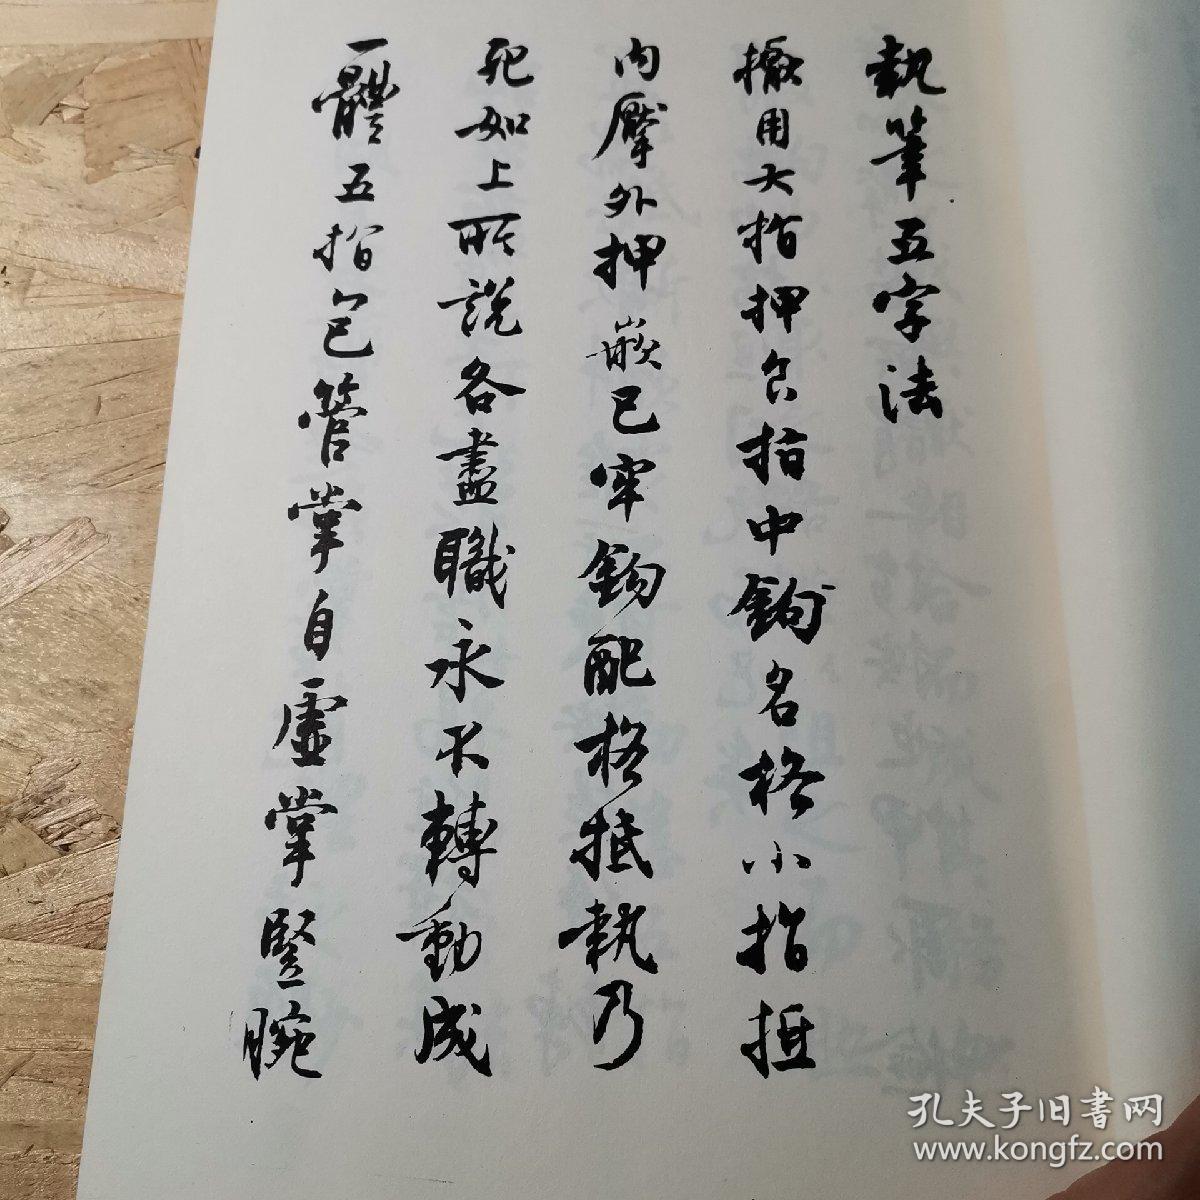 執筆五字法
擫用大指押食指中鉤名格小指抵
內擪外押嵌已牢鉤配格抵執乃
死如上所説各盡職永不轉動成
一體五指包管掌自虛掌豎腕
孔夫子旧書网
www.kongfz.com